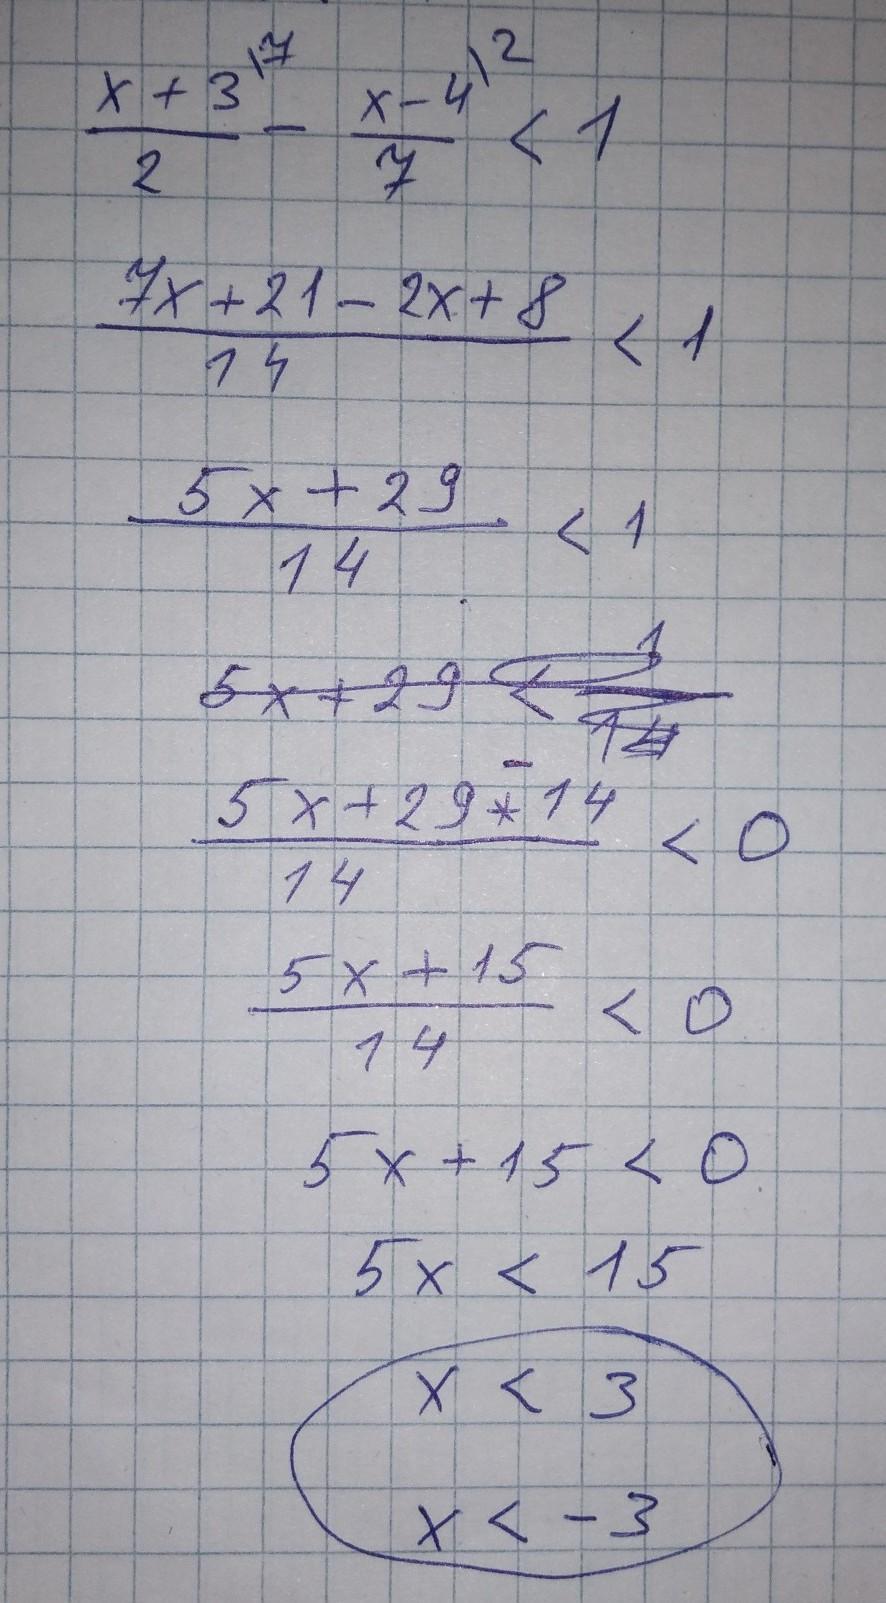 (x + 3)\7 / 2 - (x - 4)\2 / 7 < 1
(7x + 21 - 2x + 8) / 14 < 1
(5x + 29) / 14 < 1
5x + 29 < 1 / 14
(5x + 29 - 14) / 14 < 0
(5x + 15) / 14 < 0
5x + 15 < 0
5x < 15
x < 3
x < -3